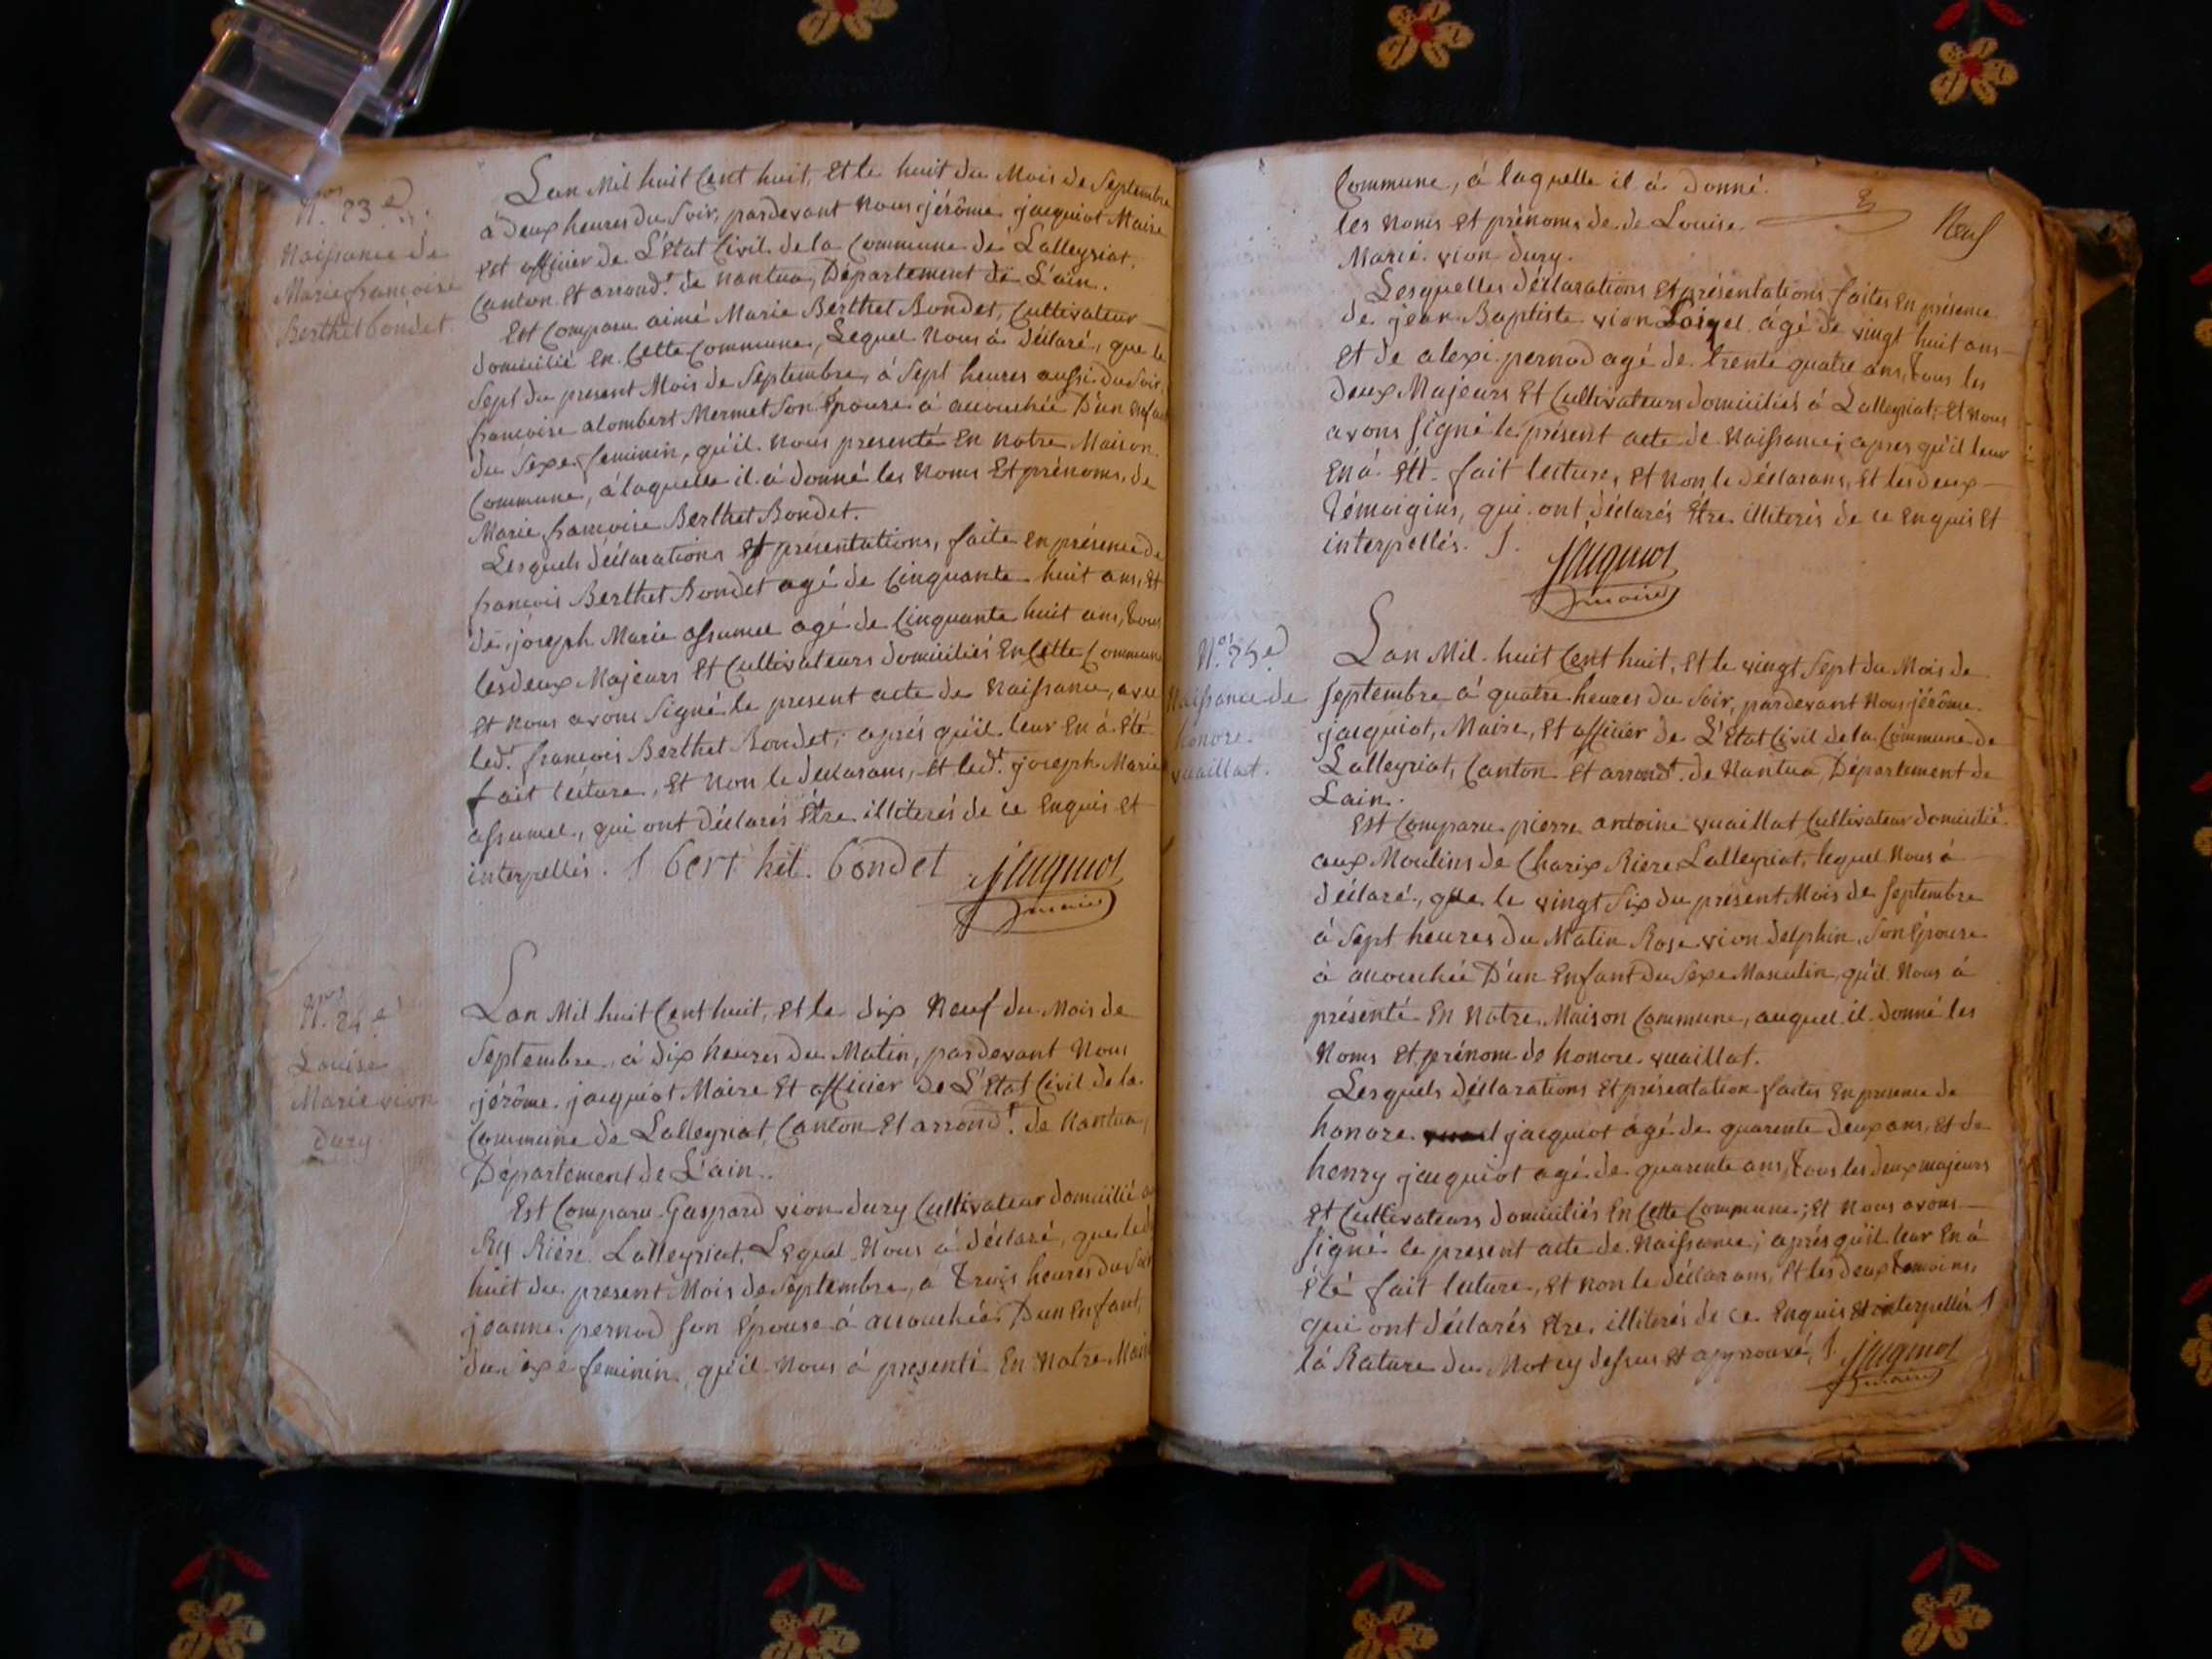 N.os 23.e
Naissance de
Marie françoise
Berthet bondet.
Lan Mil huit Cent huit, Et le huit du Mois de Septembre
à deux heures du Soir, pardevant Nous jérôme jacquiot Maire
Et officier de L'Etat Civil de la Commune de Lalleyriat,
Canton Et arrond.t de nantua, Département de L'ain.
Est Comparu aimé Marie Berthet Bondet, Cultivateur
domicilié En Cette Commune, Lequel Nous à déclaré, que le
Sept du present Mois de Septembre, à Sept heures aussi du Soir,
francoise alombert Mermet Son Epouse à accouchée D'un Enfant
du Sexe feminin, qu'il Nous presenté En Notre Maison
Commune, à laquelle il à donné les Noms Et prénoms, de
Marie francoise Berthet Bondet.
Lesquels déclarations Et présentations, faite En présence de
francois Berthet Bondet agé de Cinquante huit ans, Et
de joseph Marie assumel agé de Cinquante huit ans, tous
les deux Majeurs Et Cultivateurs domiciliés En Cette Commune
Et Nous avons Signé le present acte de Naissance, avec
led.t francois Berthet Bondet; aprés qu'il leur En à Eté
fait lecture, Et Non le declarans, Et led.t joseph Marie
assumel, qui ont déclarés Etre illiterés de ce Enquis Et
interpellés. bert het bondet jacquiot
maire
N.os 24.e
Louise
Marie vion
dury
Lan Mil huit Cent huit, Et le dix Neuf du Mois de
Septembre à dix heures du Matin, pardevant Nous
jérôme jacquiot Maire Et officier De L'Etat Civil de la
Commune de Lalleyriat, Canton Et arrond.t de Nantua,
Département de L'ain.
Est Comparu Gaspard vion dury Cultivateur domicilié au
Rys Riére Lalleyriat, Lequel Nous à déclaré, que le dix
huit du present Mois de Septembre, à trois heures du Soir
jeanne pernod Son Epouse à accouchée D'un Enfant,
du Sexe feminin, qu'il Nous à presenté En Notre Maison
Commune, à laquelle il à donné
les Noms Et prénoms de de Louise
Marie vion dury.
Neuf
Lesquelles déclarations Et présentations faites En présence
de jean Baptiste vion Loisel âgé de vingt huit ans
Et de alexi pernod agé de trente quatre ans, tous les
deux Majeurs Et Cultivateurs domiciliés à Lalleyriat, Et Nous
avons Signé le présent acte de Naissance; apres qu'il leur
En à Eté fait lecture, Et Non le déclarans, Et les deux
témoigins, qui ont déclarés Etre illiterés de ce Enquis Et
interpellés. jacquiot
maire
N.os 25.e
Naissance de
honore
vuaillat.
Lan Mil huit Cent huit, Et le vingt Sept du Mois de
Septembre à quatre heures du Soir, pardevant Nous jérôme
jacquiot, Maire, Et officier de L'Etat Civil de la Commune de
Lalleyriat, Canton Et arrond.t de Nantua, Département de
Lain.
Est Comparu pierre antoine vuaillat Cultivateur domicilié
aux Moulins de Charix Riere Lalleyriat, lequel Nous à
déclaré, que le vingt Six du présent Mois de Septembre
à Sept heures du Matin Rose vion delphin, Son Epouse
à accouchée D'un Enfant du Sexe Masculin, qu'il Nous à
présenté En Notre Maison Commune, auquel il donné les
Noms Et prénom de honore vuaillat.
Lesquels déclarations Et présentation faites En presence de
honore jacquiot âgé de quarente deux ans, Et de
henry jacquiot agé de quarente ans, tous les deux majeurs
Et Cultivateurs domiciliés En Cette Commune; Et Nous avons
Signé le present acte de Naissance; aprés qu'il leur En à
Eté fait lecture, Et Non le déclarans, Et les deux temoins,
qui ont déclarés Etre illiterés de ce Enquis Et interpellés
la Rature du Mot cy dessus Et approuvé. jacquiot
maire